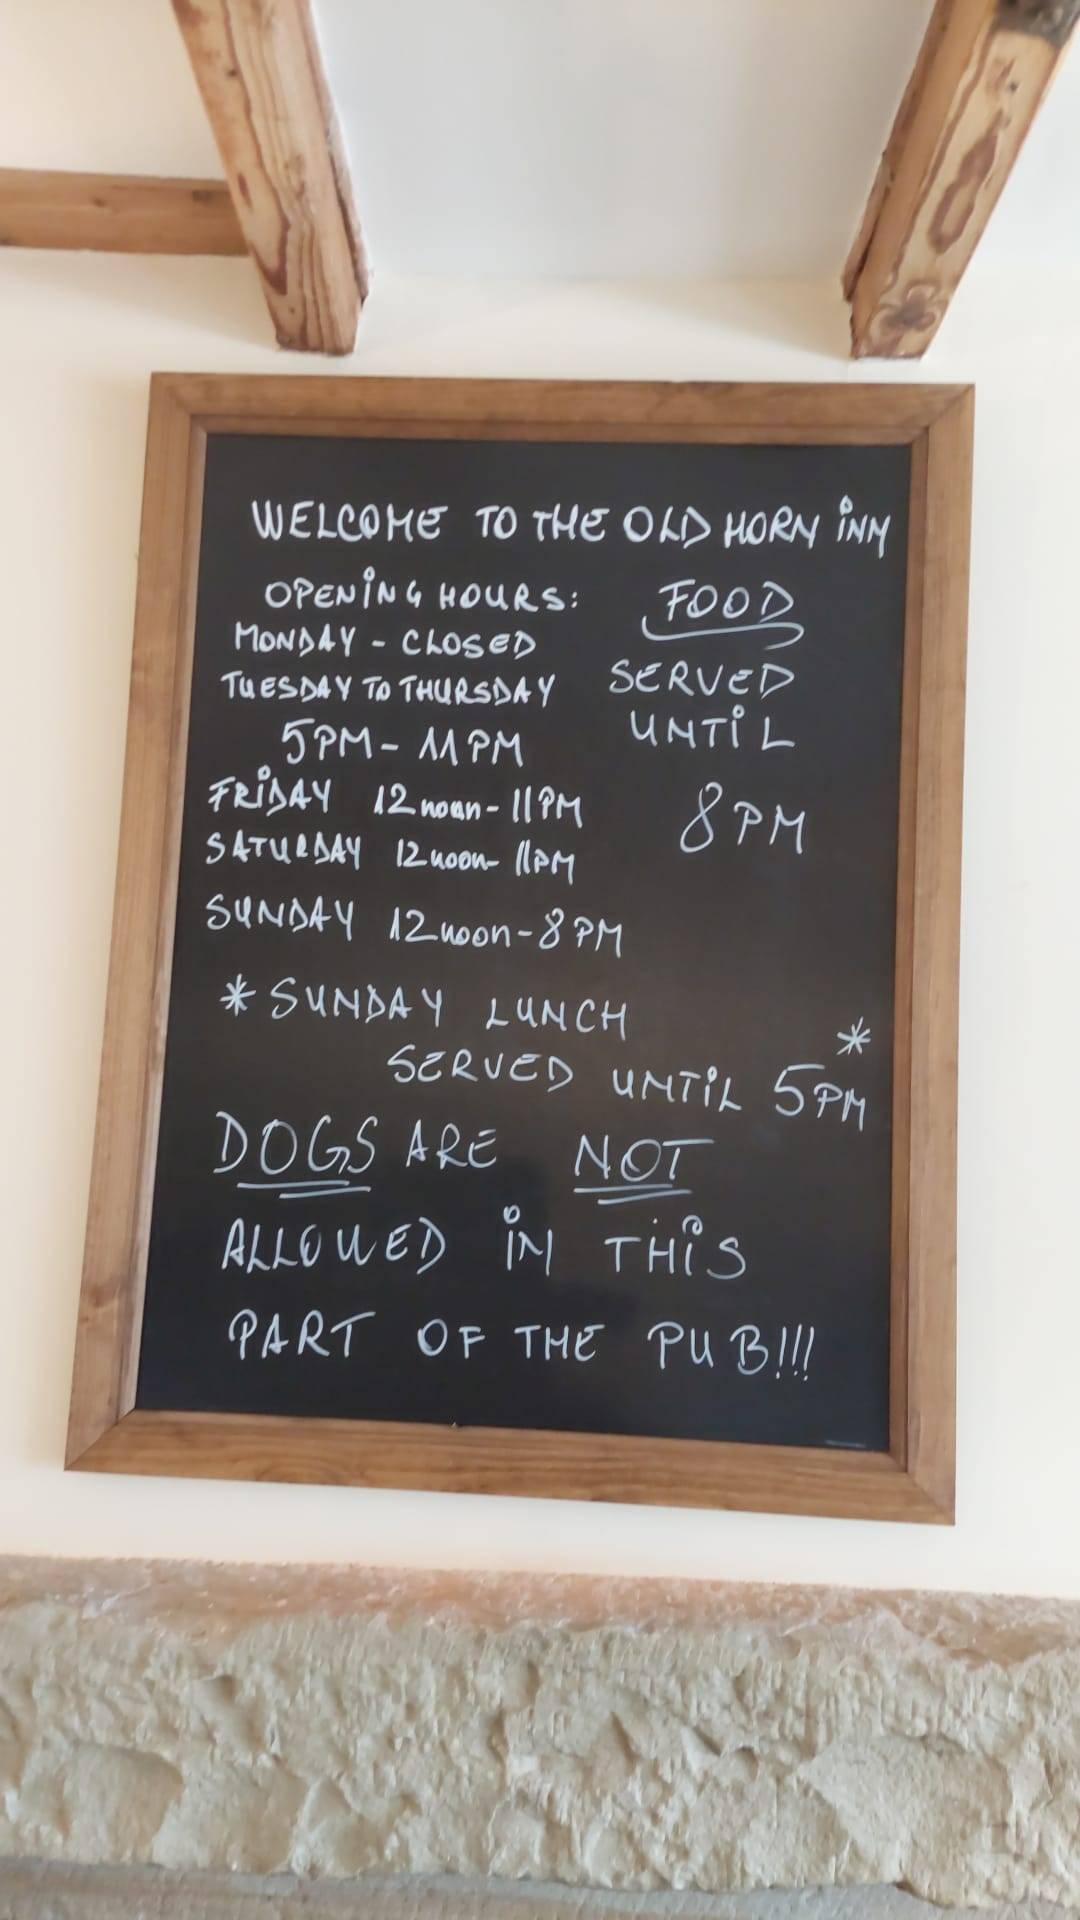 WELCOME TO THE OLD HORN INN
OPENING HOURS:
MONDAY - CLOSED
TUESDAY TO THURSDAY
5PM - 11PM
FRIDAY 12 noon - 11PM
SATURDAY 12 noon - 11PM
SUNDAY 12 noon - 8PM
FOOD
SERVED
UNTIL
8PM
* SUNDAY LUNCH
SERVED UNTIL 5PM *
DOGS ARE NOT
ALLOWED IN THIS
PART OF THE PUB!!!